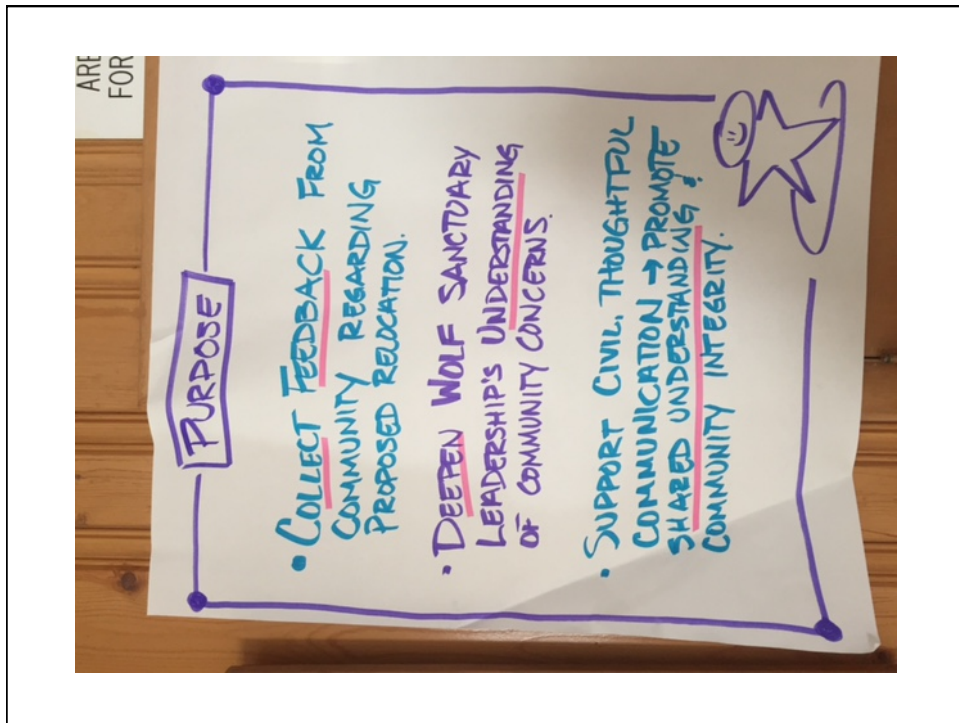 ARE
FOR
PURPOSE
• COLLECT FEEDBACK FROM
COMMUNITY REGARDING
PROPOSED RELOCATION.
• DEEPEN WOLF SANCTUARY
LEADERSHIP'S UNDERSTANDING
OF COMMUNITY CONCERNS.
• SUPPORT CIVIL, THOUGHTFUL
COMMUNICATION → PROMOTE
SHARED UNDERSTANDING &
COMMUNITY INTEGRITY.